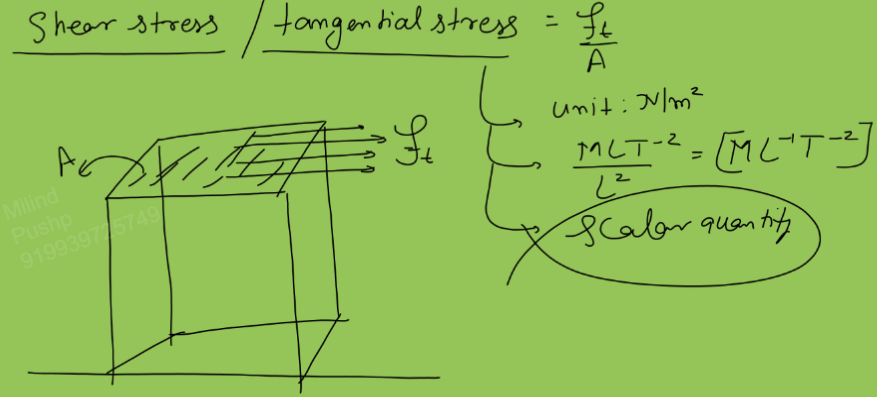 Shear stress / tangential stress = Ft/A
unit : N/m²
MLT⁻²/L² = [ML⁻¹T⁻²]
Scalar quantity
A
Ft
Milind
Pushp